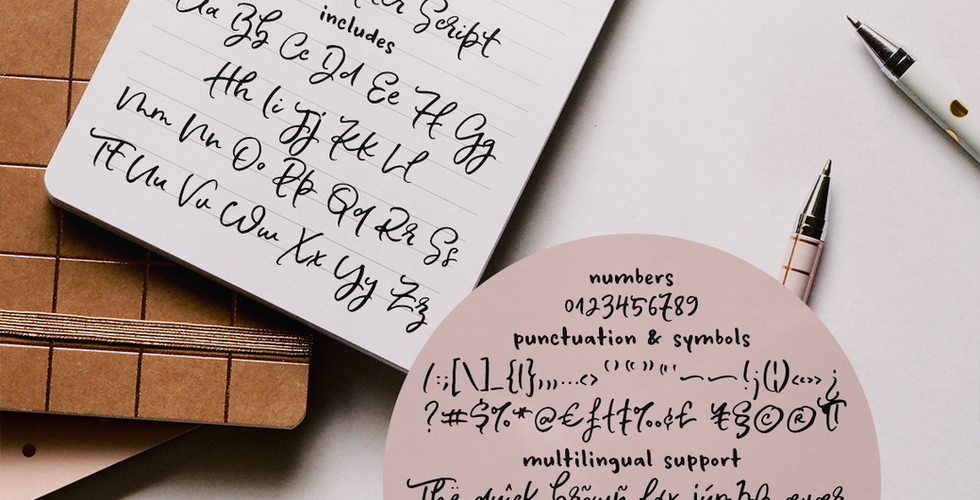 Script
includes
Aa Bb Cc Dd Ee Ff Gg
Hh Ii Jj Kk Ll
Mm Nn Oo Pp Qq Rr Ss
Tt Uu Vv Ww Xx Yy Zz
numbers
0123456789
punctuation & symbols
/:;[\]_{|},,,...<> ‘’“”"' –—!¡()‹›«»¿
?#$%*@€ƒ†‡‰¢£ ¥§©®¶
multilingual support
Thë qúick brõwñ